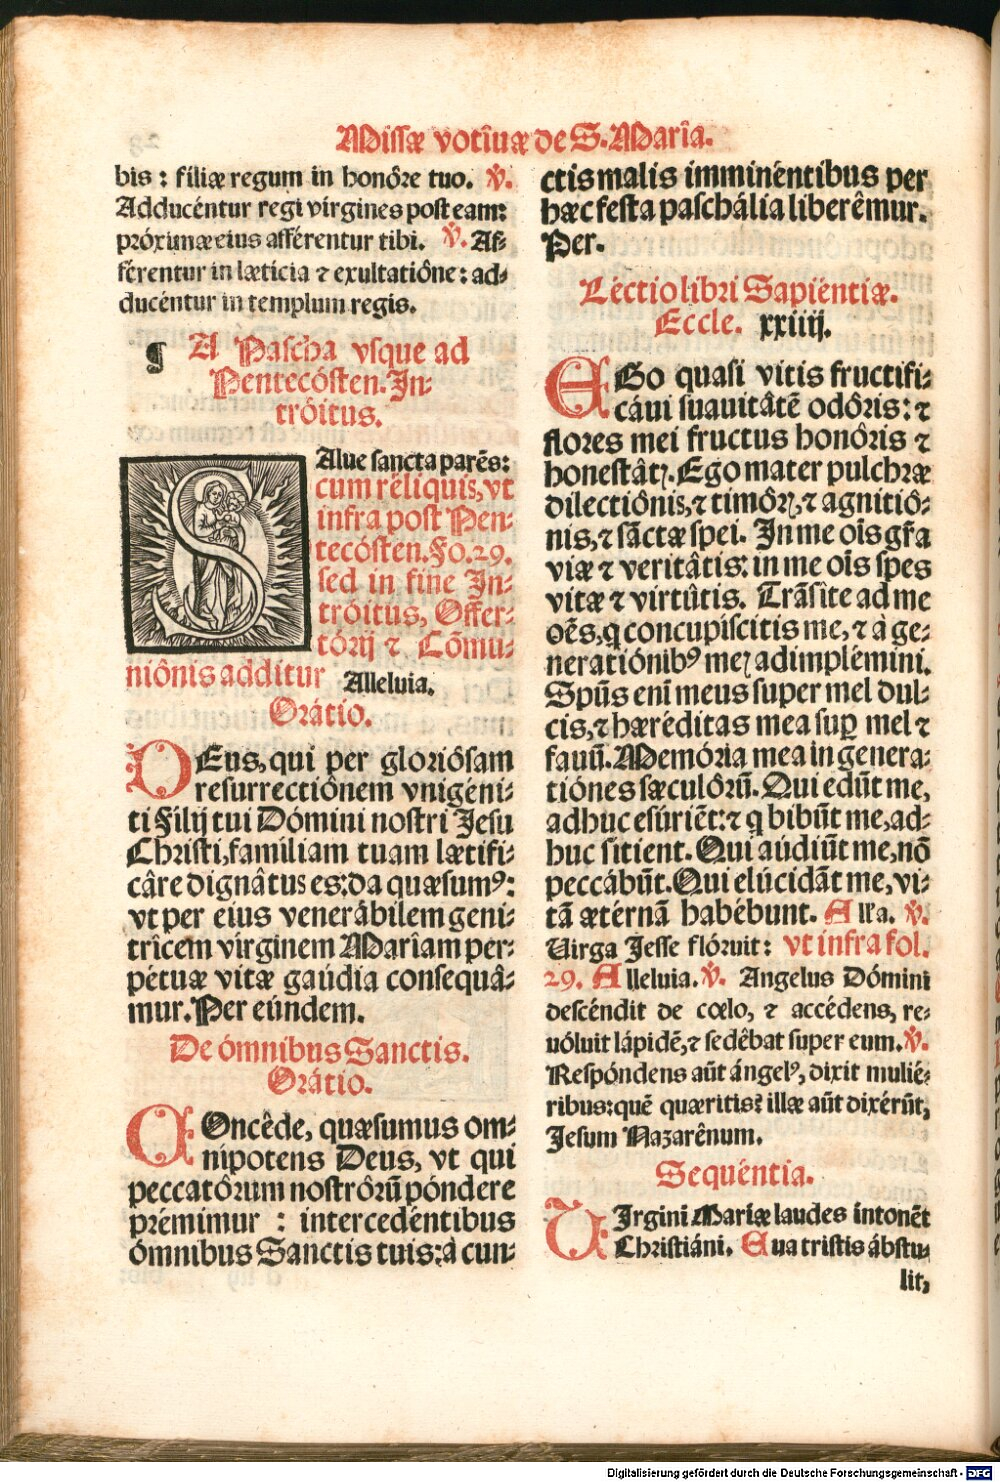 Missæ votîuæ de S. Marîa.
bis : filiæ regum in honôre tuo. ℣.
Adducéntur regi virgines post eam:
próximæ eius afférentur tibi. ℣. Af-
férentur in læticia ⁊ exultatiône: ad-
ducéntur in templum regis.
¶ A Pascha vsque ad
Pentecósten. In-
tróitus.
SAlue sancta parẽs:
cum réliquis, vt
infra post Pen-
tecósten. Fo. 29.
sed in fine In-
tróitus, Offer-
tórij ⁊ Cõmu-
niônis additur Alleluia.
Orátio.
DEus, qui per gloriôsam
resurrectiônem vnigéni-
ti Filij tui Dómini nostri Jesu
Christi, familiam tuam lætifi-
câre dignâtus es: da quæsumꝰ:
vt per eius venerábilem geni-
trîcem virginem Marîam per-
pétuæ vitæ gaúdia consequâ-
mur. Per eúndem.
De ómnibus Sanctis.
Orátio.
COncêde, quæsumus om-
nipotens Deus, vt qui
peccatôrum nostrôrũ póndere
prémimur : intercedéntibus
ómnibus Sanctis tuis: à cun-
ctis malis imminéntibus per
hæc festa paschália liberêmur.
Per.
Léctio libri Sapiéntiæ.
Eccle. xxiiij.
EGo quasi vitis fructifi-
cáui suauitâtẽ odôris: ⁊
flores mei fructus honôris ⁊
honestâtꝭ. Ego mater pulchræ
dilectiônis, ⁊ timôrꝭ, ⁊ agnitiô-
nis, ⁊ sãctæ spei. In me oĩs gr̃a
viæ ⁊ veritâtis: in me oĩs spes
vitæ ⁊ virtûtis. Trãsite ad me
oẽs, q concupiscitis me, ⁊ à ge-
neratiónibꝰ meꝭ adimplémini.
Spũs enĩ meus super mel dul-
cis, ⁊ hæréditas mea suꝑ mel ⁊
fauũ. Memória mea in genera-
tiónes sæculôrũ. Qui edũt me,
adhuc esúriẽt: ⁊ q bibũt me, ad-
huc sitient. Qui aúdiũt me, nõ
peccábũt. Qui elúcidãt me, vi-
tã ætérnã habébunt. Alľa. ℣.
Uirga Jesse flóruit : vt infra fol.
29. Alleluia. ℣. Angelus Dómini
descéndit de cœlo, ⁊ accédens, re-
uóluit lápidẽ, ⁊ sedêbat super eum. ℣.
Respóndens aũt ángelꝰ, dixit mulié-
ribus: quẽ quæritis? illæ aũt dixérũt,
Jesum Nazarênum.
Sequéntia.
UIrgini Mariæ laudes intonẽt
Christiáni. Eua tristis ábstu-
lit,
Digitalisierung gefördert durch die Deutsche Forschungsgemeinschaft - DFG